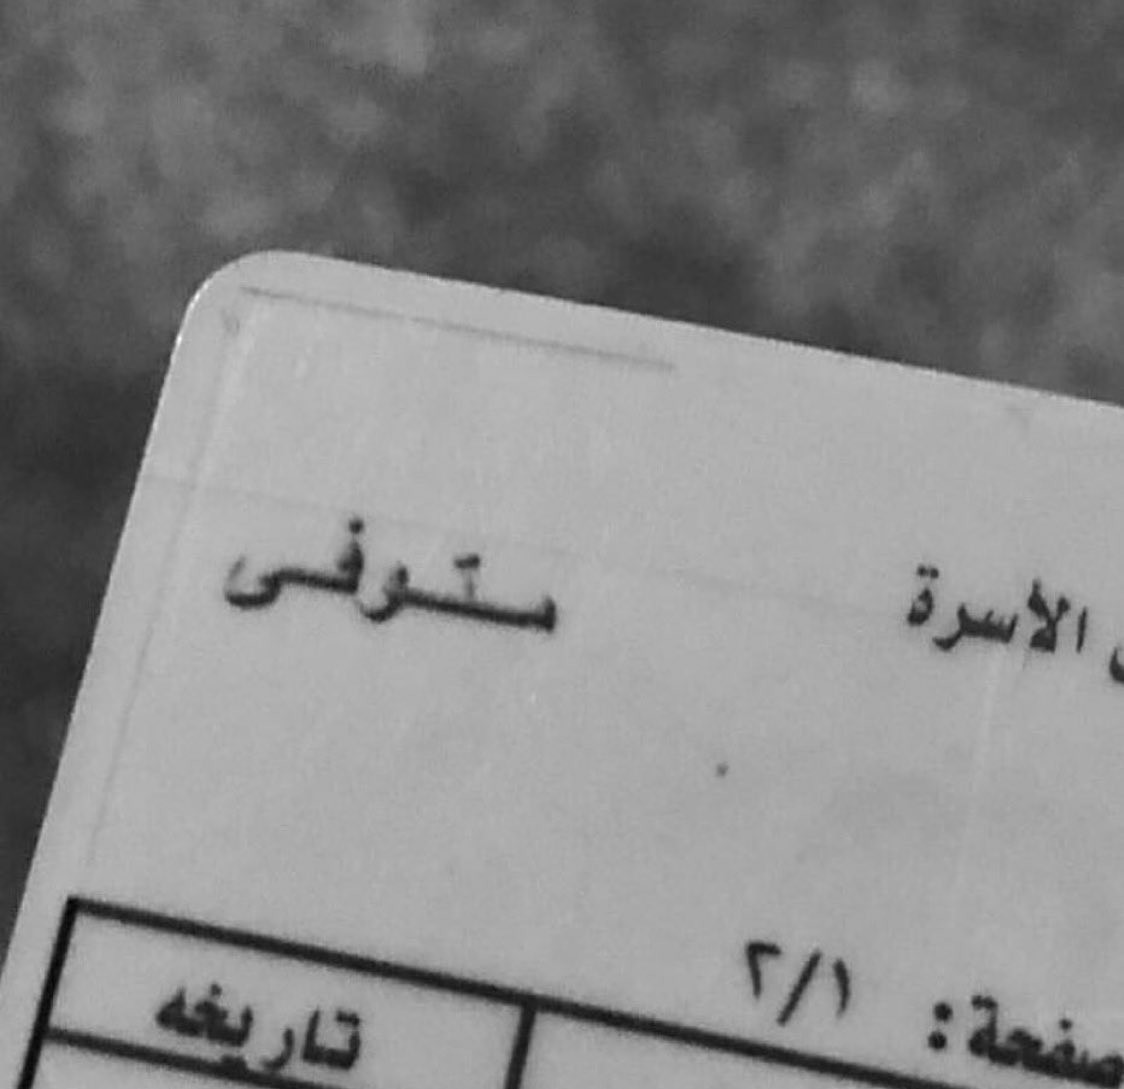 الأسرة
متوفى
صفحة: ٢/١
تاريخه